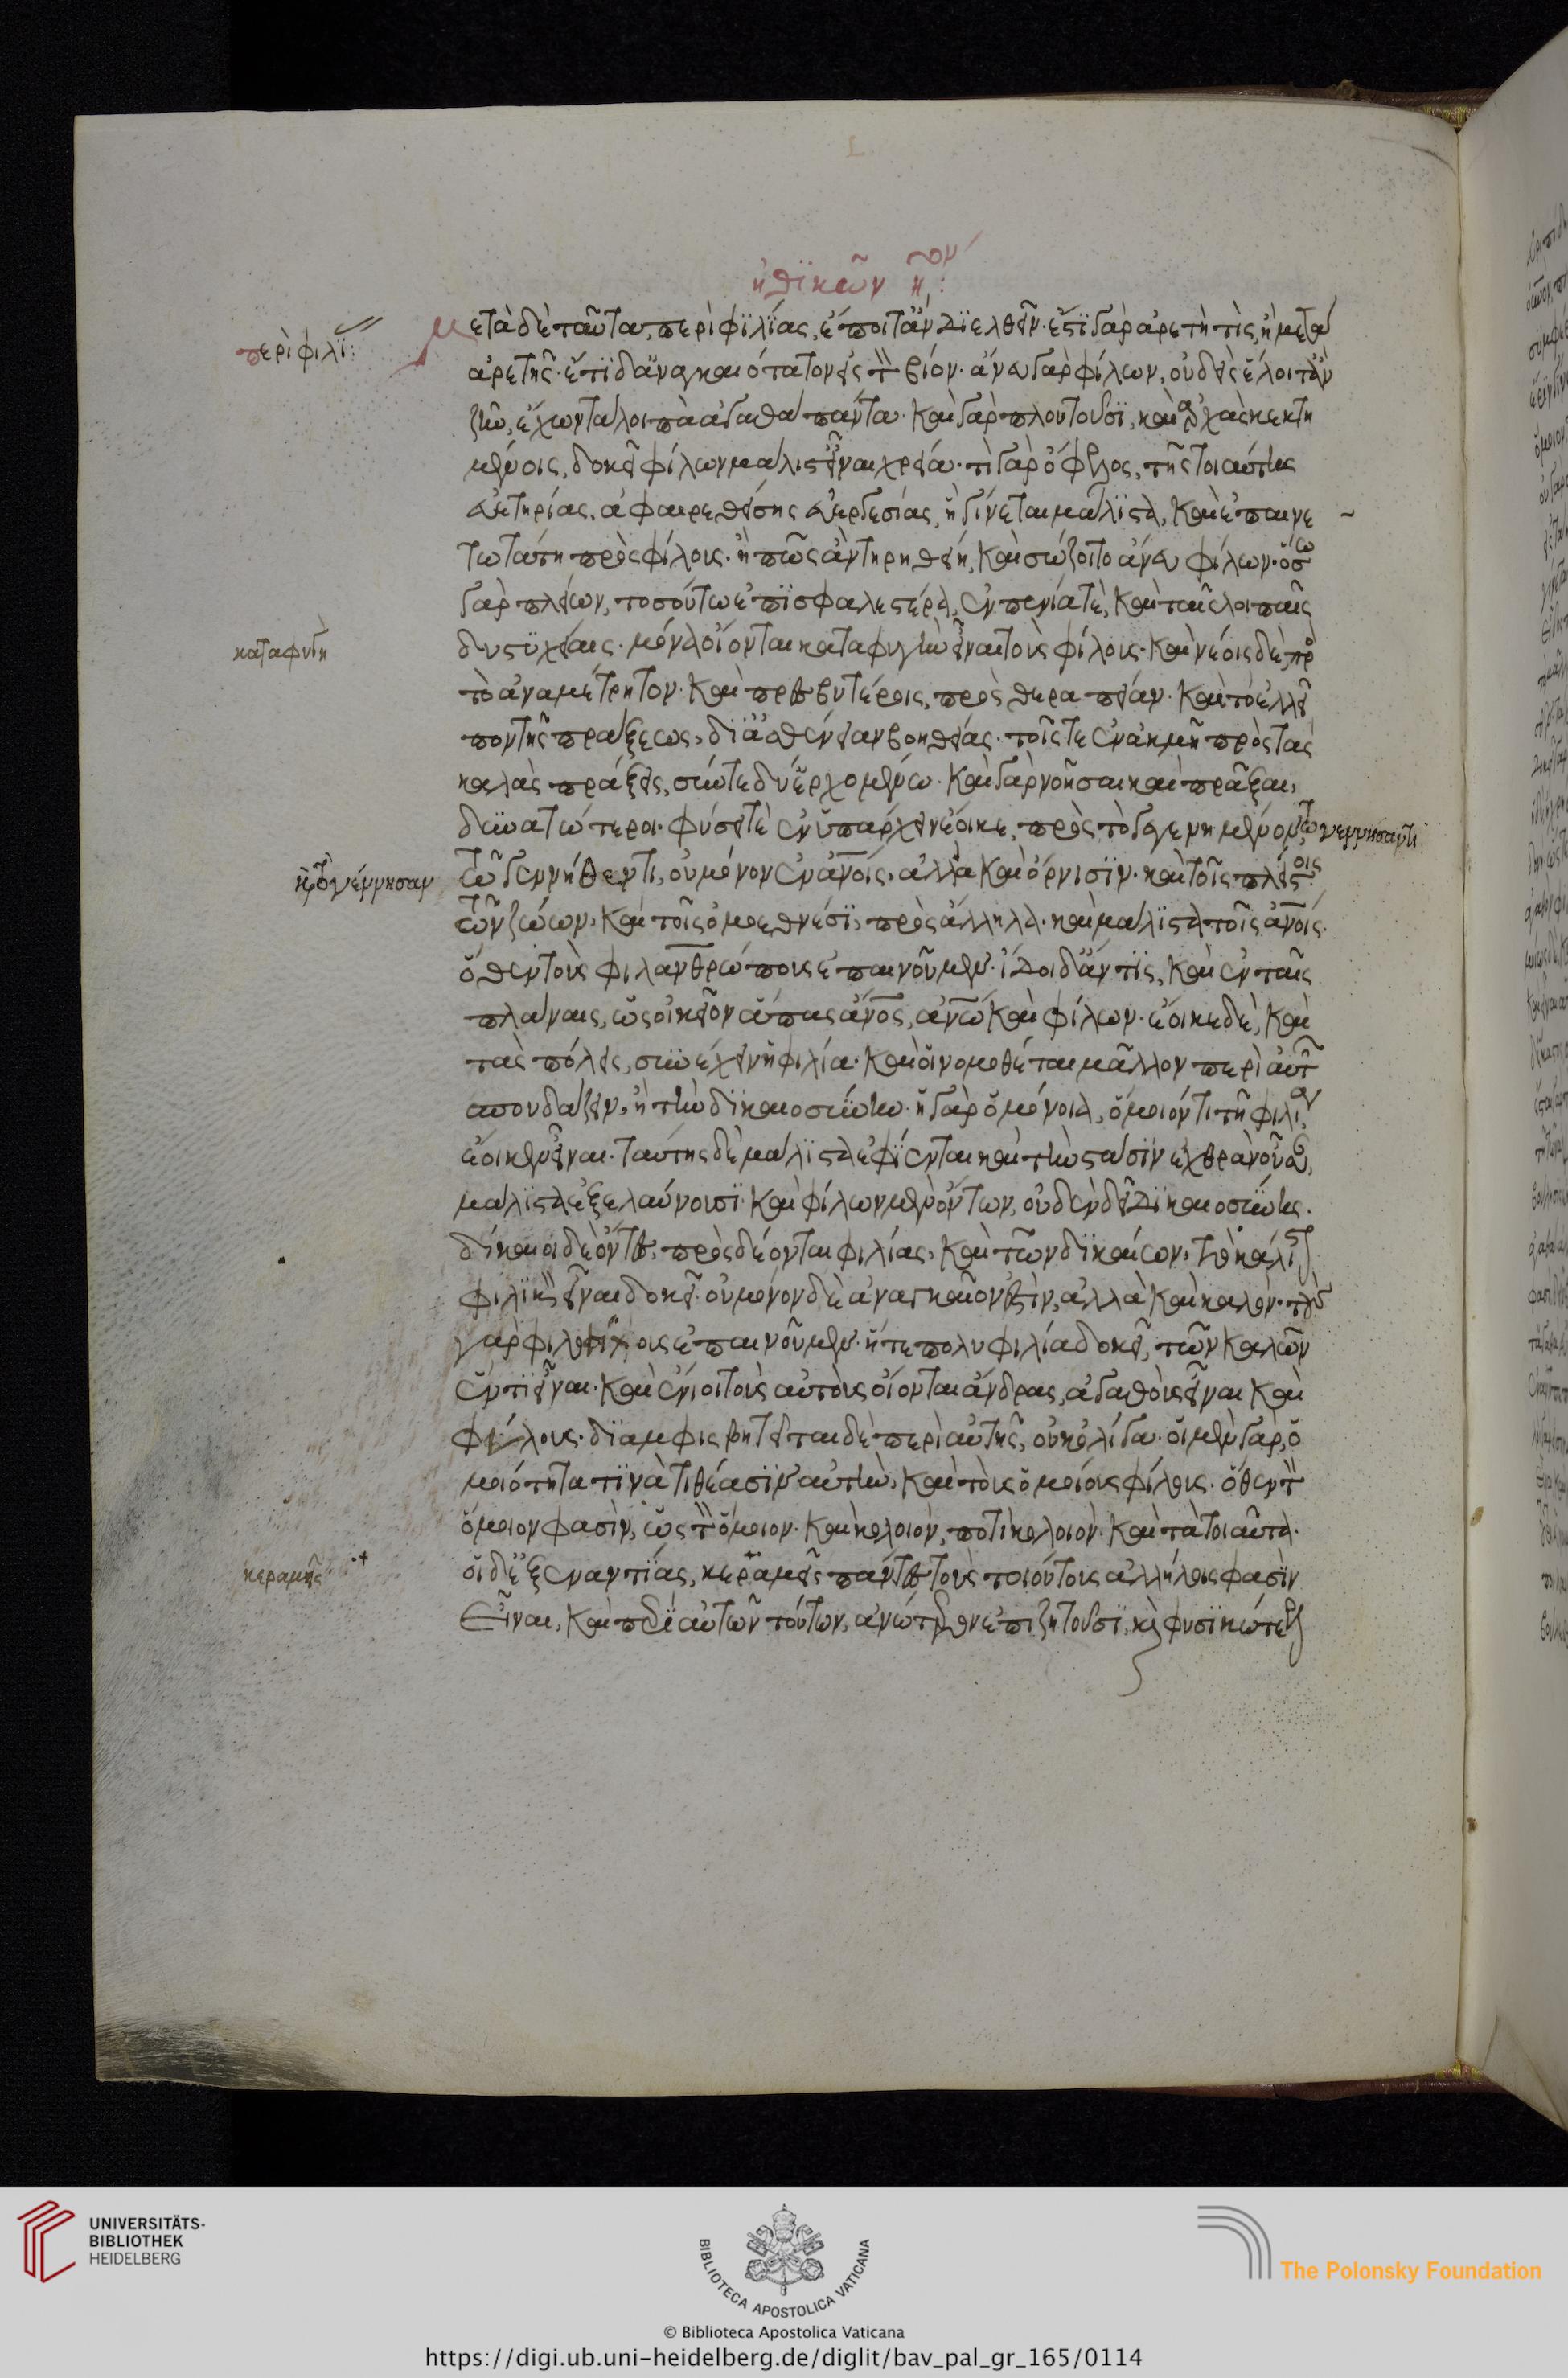 ἠθικῶν η̅ον:
περὶ φιλί:
Μετὰ δὲ ταῦτα, περὶ φιλίας, ἕποιτ' ἂν διελθεῖν. ἔστι γὰρ ἀρετή τις, ἢ μετὰ
ἀρετῆς. ἔτι δ' ἀναγκαιότατον εἰς τὸν βίον. ἄνευ γὰρ φίλων, οὐδεὶς ἕλοιτ' ἂν
ζῆν, ἔχων τὰ λοιπὰ ἀγαθὰ πάντα. καὶ γὰρ πλουτοῦσι, καὶ ἀρχὰς κεκτη
μένοις, δοκεῖ φίλων μάλιστ' εἶναι χρεία. τί γὰρ ὄφελος, τῆς τοιαύτης
εὐετηρίας, ἀφαιρεθείσης εὐεργεσίας, ἣ γίνεται μάλιστα, καὶ ἐπαινε
τωτάτη πρὸς φίλους. ἢ πῶς ἂν τηρηθείη, καὶ σώζοιτο ἄνευ φίλων. ὅσω
γὰρ πλείων, τοσούτω ἐπισφαλεστέρα, ἐν πενία τὲ, καὶ ταῖς λοιπαῖς
καταφυγὴ
δυστυχίαις. μόνα οἴονται καταφυγὴν εἶναι τοὺς φίλους. καὶ νέοις δὲ πρ
τὸ ἀναμέτρητον. καὶ πρεσβυτέροις, πρὸς θεραπείαν. καὶ τὸ ἐλλεῖ
πον τῆς πράξεως, δι' ἀσθένειαν βοηθείας. τοῖς τε ἐν ἀκμῇ πρὸς τὰς
καλὰς πράξεις, σύν τε δύ' ἐρχομένω. καὶ γὰρ νοῆσαι καὶ πρᾶξαι,
δυνατώτεροι. φύσει τὲ ἐνυπάρχειν ἔοικε, πρὸς τὸ γεγενημένον, τῶ γεννήσαντι
τῶ γεννηθέντι, οὐ μόνον ἐν ἀν̅οις, ἀλλὰ καὶ ὄρνισιν. καὶ τοῖς πλείστοις
τῶν ζώων, καὶ τοῖς ὁμοεθνέσι, πρὸς ἄλληλα. καὶ μάλιστα τοῖς ἀν̅οις.
ὅθεν τοὺς φιλανθρώπους ἐπαινοῦμεν. ἴδοι δ' ἄν τις, καὶ ἐν ταῖς
πλάναις, ὡς οἰκεῖον ἅπας ἄν̅ος, ἀν̅ω καὶ φίλων. ἔοικε δὲ, καὶ
τὰς πόλεις, συνέχειν ἡ φιλία. καὶ οἱ νομοθέται μᾶλλον περὶ αὐτ
σπουδάζειν, ἢ τὴν δικαιοσύνην. ἡ γὰρ ὁμόνοια, ὅμοιόν τι τῇ φιλία
ἔοικεν εἶναι. ταύτης δὲ μάλιστα ἐφίενται καὶ τὴν στάσιν ἐχθρὰν οὖσαν,
μάλιστα ἐξελαύνουσι. καὶ φίλων μὲν ὄντων, οὐδὲν δεῖ δικαιοσύνης.
δίκαιοι δὲ ὄντες, προσδέονται φιλίας, καὶ τῶν δικαίων, τὸ μάλιστ
φιλικὸν εἶναι δοκεῖ. οὐ μόνον δὲ ἀναγκαῖον ἐστὶν, ἀλλὰ καὶ καλόν. τοὺς
γὰρ φιλοφίλους ἐπαινοῦμεν. ἥ τε πολυφιλία δοκεῖ, τῶν καλῶν
ἕν τι εἶναι. καὶ ἔνιοι τοὺς αὐτοὺς οἴονται ἄνδρας, ἀγαθοὺς εἶναι καὶ
φίλους. διαμφισβητεῖται δὲ περὶ αὐτῆς, οὐκ ὀλίγα. οἱ μὲν γὰρ, ὁ
μοιότητα τινὰ τιθέασιν αὐτὴν, καὶ τοὺς ὁμοίους φίλους. ὅθεν τὸν
ὅμοιον φασὶν, ὡς τὸν ὅμοιον. καὶ κολοιὸν, ποτὶ κολοιόν. καὶ τὰ τοιαῦτα.
κεραμεῖς
οἱ δ' ἐξ ἐναντίας, κεραμεῖς πάντες τοὺς τοιούτους ἀλλήλοις φασὶν
εἶναι, καὶ περὶ αὐτῶν τούτων, ἀνώτερον ἐπιζητοῦσι, καὶ φυσικώτερον
UNIVERSITÄTS-
BIBLIOTHEK
HEIDELBERG
BIBLIOTECA APOSTOLICA VATICANA
The Polonsky Foundation
© Biblioteca Apostolica Vaticana
https://digi.ub.uni-heidelberg.de/diglit/bav_pal_gr_165/0114